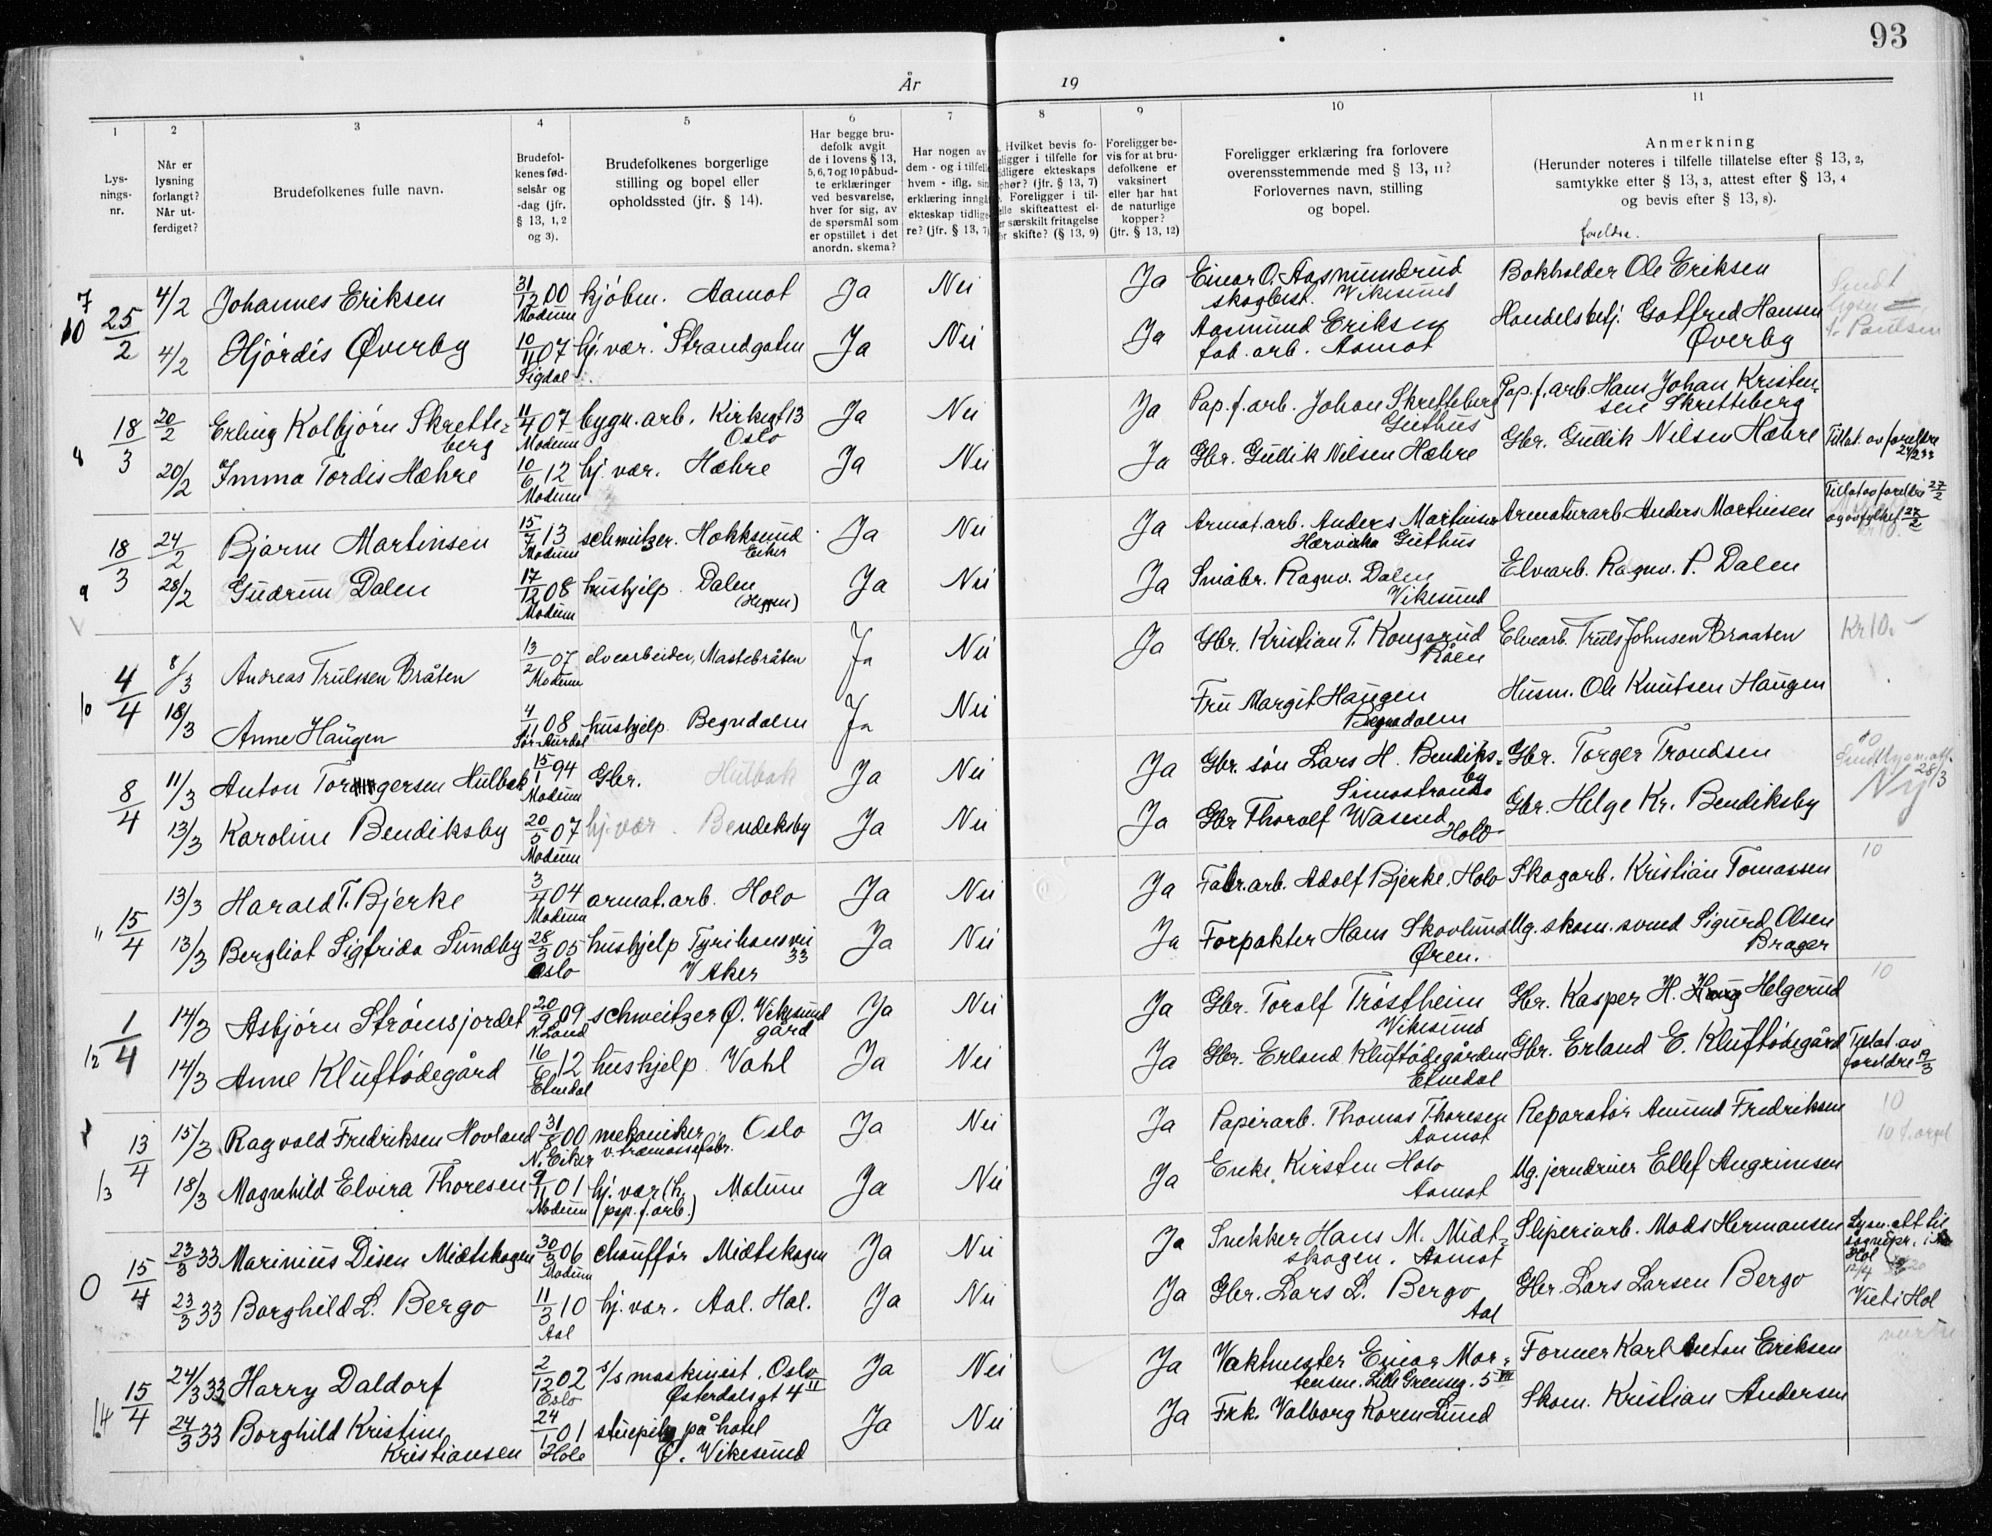 93
År
19
1
2
3
4
5
6
7
8
9
10
11
Lys-
nings-
nr.
Når er
lysning
forlangt?
Når ut-
ferdiget?
Brudefolkenes fulle navn.
Brudefol-
kenes fød-
selsår og
-dag (jfr.
§ 13, 1, 2
og 3).
Brudefolkenes borgerlige
stilling og bopel eller
opholdssted (jfr. § 14).
Har begge bru-
defolk avgit
de i lovens § 13,
5, 6, 7 og 10 påbud-
te erklæringer
ved besvarelse,
hver for sig, av
de spørsmål som
er opstillet i det
anordn. skema?
Har nogen av
dem - og i tilfelle
hvem - iflg. sin
erklæring inngå
ekteskap tidlige-
re? (jfr. § 13, 7)
Hvilket bevis fo-
religger i tilfelle for
tidligere ekteskaps
ophør? (jfr. § 13, 7)
Foreligger i til-
felle skifteattest el-
ler særskilt fritagelse
for skifte? (§ 13, 9)
Foreligger be-
vis for at bru-
defolkene er
vaksinert
eller har hat
de naturlige
kopper?
(jfr. § 13, 12)
Foreligger erklæring fra forlovere
overensstemmende med § 13, 11?
Forlovernes navn, stilling
og bopel.
Anmerkning
(Herunder noteres i tilfelle tillatelse efter § 13, 2,
samtykke efter § 13, 3, attest efter § 13, 4
og bevis efter § 13, 8).
foreldre.
7
10 25/2 4/2 Johannes Eriksen 31/12 00 Modum kjøbm. Aamot Ja Nei Ja Einar O. Aasmundrud skogbest. Vikesund Bokholder Ole Eriksen Sendt
4/2 Hjørdis Øverby 10/11 07 Sigdal hj. vær. Strandgaten Ja Nei Ja Aasmund Eriksen fab. arb. Aamot Handelsbetj. Gotfred Hansen Øverby
8 18/3 20/2 Erling Kolbjørn Skretteberg 11/4 07 Modum bygn. arb. Kirkegt 13 Oslo Ja Nei Ja Pap. f. arb. Johan Skretteberg Guthus Pap. f. arb. Hans Johan Kristensen Skretteberg
20/2 Imma Tordis Hæhre 10/6 12 Modum hj. vær. Hæhre Ja Nei Ja Gbr. Gudik Nilsen Hæhre Gbr. Gudik Nilsen Hæhre Tillat. av foreldre 24/2 33
9 18/3 24/2 Bjarne Martinsen 15/7 13 Modum schweitzer. Hokksund Eiker Ja Nei Ja Armat. arb. Anders Martinsen Guthus Armaturarb Anders Martinsen Tillat av foreldre 27/2 og av fylket 27/2
28/2 Gudrun Dalen 17/12 08 Modum hushjelp. Dalen (Heggen) Ja Nei Ja Småbr. Ragnv. Dalen Vikesund Elvearb. Ragnv. P. Dalen
10 4/4 8/3 Andreas Trulssen Bråten 13/2 07 Modum elvearbeider, Mastebråten Ja Nei Ja Gbr. Kristian T. Kongsrud Råen Elvearb. Truls Johnsen Braaten Kr 10.-
18/3 Anne Haugen 4/11 08 Sør-Aurdal hushjelp Begndalen Ja Nei Fru Margit Haugen Begndalen Husm. Ole Knutsen Haugen
8/4 11/3 Anton Torgersen Hulbak 15/1 94 Modum Gbr. Hulbak Ja Nei Ja Gbr. søn Lars H. Bendiksby Simostranda Gbr. Torger Trondsen 10 28/3
13/3 Karoline Bendiksby 20/5 07 Modum hj. vær. Bendiksby Ja Nei Ja Gbr Thorolf Wasend Holo Gbr. Helge Kr. Bendiksby
11 15/4 13/3 Harald T. Bjerke 3/4 04 Modum armat. arb. Holo Ja Nei Ja Fabr. arb. Adolf Bjerke. Holo Skogarb. Kristian Tomassen 10
13/3 Bergliot Sigfrida Sundby 28/3 05 Oslo hushjelp Tyrihansvei 33 V Aker Ja Nei Ja Forpakter Hans Skovlund Øren. Ug. skom. svend Sigurd Olsen Brager
12 1/4 14/3 Asbjørn Strømsjordet 20/2 09 N. Land schweitzer Ø. Vikesund gård Ja Nei Ja Gbr. Toralf Trøstheim Vikesund Gbr. Kasper H. Helgerud 10
14/3 Anne Kluftødegård 16/6 12 Etnedal hushjelp. Vahl Ja Nei Ja Gbr. Erland Kluftødegården Etnedal Gbr. Erland E. Kluftødegård Tillat. av foreldre 19/3
13 13/4 15/3 Ragvald Fredriksen Hovland 31/8 00 N. Eiker mekaniker v. træmassefabr. Oslo Ja Nei Ja Papirarb. Thomas Thoresen Aamot Reparatør Amund Fredriksen 10
18/3 Magnhild Elvira Thoresen 9/11 01 Modum hj. vær (h. (pap. f. arb.) Modum Ja Nei Ja Enke Kirsten Holo Aamot Ug. jerndreier Ellef Angrimsen 10 f. orgel
0 15/4 23/3 33 Marinius Disen Midtskogen 30/3 06 Modum chauffør Midtskogen Ja Nei Ja Snekker Hans M. Midtskogen. Aamot Sliperiarb. Mads Hermansen Lysn. att til sognepr. i Hol 12/4
23/3 33 Borghild L. Bergo 11/3 10 Aal hj. vær. Aal. Hal. Ja Nei Ja Gbr. Lars L. Bergo Aal Gbr. Lars Larsen Bergo Viet i Hol
14 15/4 24/3 33 Harry Daldorf 2/12 02 Oslo s/s maskinist. Oslo Østerdalsgt 4 II Ja Nei Ja Vaktmester Einar Mortensen. Lille Grenseg. 5 VII Former Karl Anton Eriksen
24/3 33 Borghild Kristine Kristiansen 24/1 01 Hole stuepike på hotel Ø. Vikesund Ja Nei Ja Frk. Valborg Koren Lund Skom. Kristian Andersen